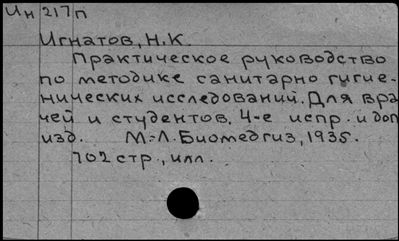 Ин 217п
Игнатов, Н.К.
Практическое руководство
по методике санитарно гигие-
нических исследований. Для вра
чей и студентов. 4-е испр. и доп
изд. М.-Л. Биомедгиз, 1935.
702 стр., илл.